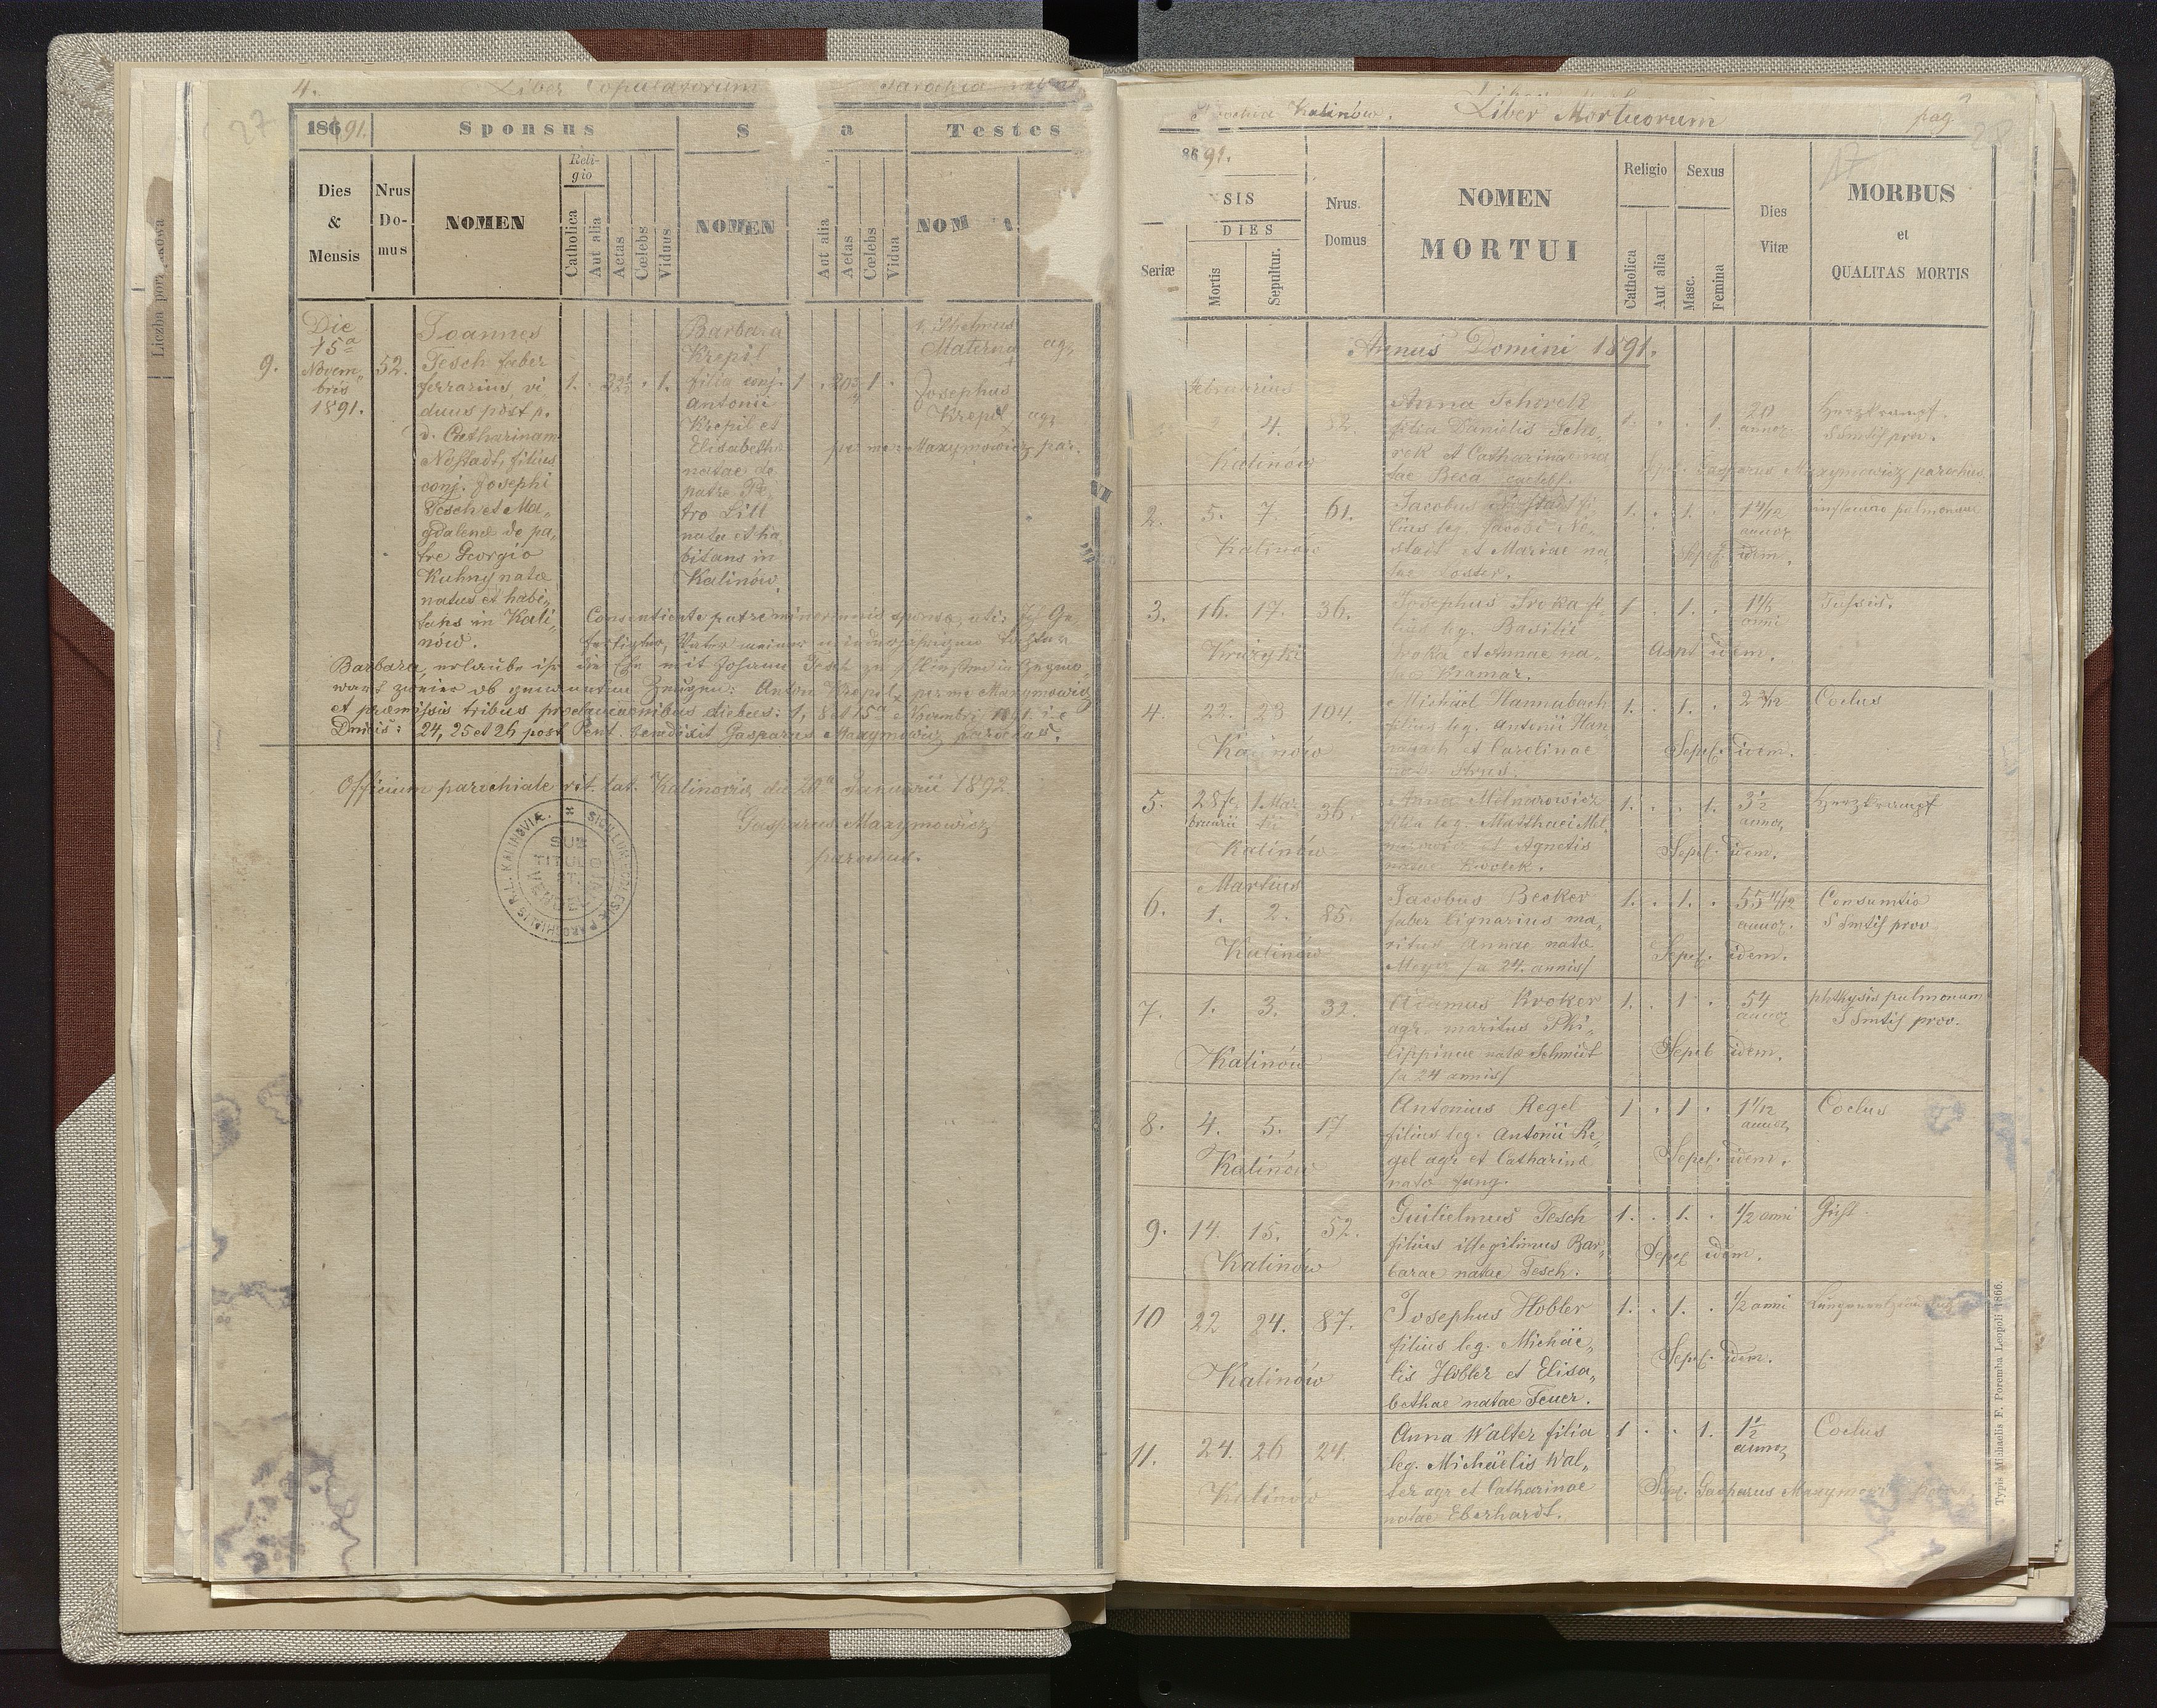 4. Liber Copulatorum Parochia
27
186 91. Sponsus S a Testes
Dies & Mensis
Nrus Do- mus
NOMEN
Reli- gio
Catholica
Aut alia
Aetas
Cœlebs
Viduus
NOMEN
Aut alia
Aetas
Cœlebs
Vidua
NOM
9.
Die
15a
Novem„
bris
1891.
52.
Joannes
Tesch faber
ferrarius vi
duus post p.
d. Catharinam
Nostadt, filius
conj. Josephi
Tesch et Ma„
gdalenae de pa„
tre Georgio
Kuhn natae
natus et habi„
tans in Kali„
nów.
1. . . 1.
Barbara
Krepil
filia conj.
Antonii
Krepil et
Elisabethae
natae de
patre Pe„
tro Litt
nata et ha„
bitans in
Kalinów
1 . 1 .
Materna agr
Josephus
Krepil agr
per me Maxymowicz par.
Consentiente patre minorennis sponsae, uti:
Barbara, erlaube ihr die Ehe mit Johann Tesch zu
Zeugen: Anton Krepil per me Maxymowicz
et praemissis tribus proclamationibus diebus: 1, 8 et 15a Novembris 1891 i. e.
Dnicis: 24, 25 et 26 post Pent. benedixit Gasparus Maxymowicz parochus.
Officium parochiale rit. lat. Kalinoviae die 20a Januarii 1892
Gasparus Maxymowicz
parochus.
SIGILLUM ECCLESIAE PAROCHIALIS R. L. KALINOVIÆ.
SUB
TITULO
Liczba
Parochia Kalinów. Liber Mortuorum pag.
28
17
86 91.
SIS
DIES
Seriæ
Mortis
Sepultur.
Nrus. Domus
NOMEN
MORTUI
Religio
Catholica
Aut alia
Sexus
Masc.
Femina
Dies Vitæ
MORBUS
et
QUALITAS MORTIS
Annus Domini 1891.
Februarius
4. 82.
Kalinów
Anna Schorek
filia Danielis Scho„
rek et Catharinae na„
tae Beca caelebs.
1. . . 1. 20
annor.
Herzkrampf.
SSmtis prov.
Sepel. Gasparus Maxymowicz parochus
2. 5. 7. 61.
Kalinów
Jacobus Nostadt fi„
lius leg. Jacobi No„
stadt et Mariae na„
tae Koster.
1. . 1. .
annor
Sepel. idem.
3. 16. 17. 36.
Krużyki
Josephus Sroka fi„
lius leg. Basilii
Sroka et Annae na„
tae Kramar.
1 . 1. .
anni
Tussis.
idem.
4. 22. 23 104.
Kalinów
Michäel Hannabach
filius leg. Antonii Han„
nabach et Carolinae
1. . 1. .
Coclus
Sepel. idem.
5. 28 fe„
bruarii
1. Mar„
tii
36.
Kalinów
Anna Milnarowicz
filia leg. Matthaei Mil„
narowicz et Agnetis
natae Kwolek.
1. . . 1. 3½
annor
Herzkrampf
Sepel. idem.
Martius
6. 1. 2. 85.
Kalinów
Jacobus Becker
faber lignarius ma„
ritus Annae natae
Meyer /a 24. annis/
1. . 1. . 55 11/12
annor.
Consumtio
SSmtis prov
Sepel. idem.
7. 1. 3. 32.
Kalinów
Adamus Kroker
agr. maritus Phi„
lippinae natae Schmüt
/a 24 annis/
1. . 1 . 54
annor
phthysis pulmonum
SSmtis prov.
Sepel idem.
8. 4. 5. 17
Kalinów
Antonius Regel
filius leg. Antonii Re„
gel agr et Catharinae
natae Jung.
1 . 1 . 1 1/12
annor,
Coclus
Sepel. idem.
9. 14. 15. 52.
Kalinów
Guilielmus Tesch
filius illegitimus Bar„
barae natae Tesch.
1. . 1. . ½ anni
Sepel idem.
10 22 24. 87.
Kalinów
Josephus Hobler
filius leg. Michäe„
lis Hobler et Elisa„
bethae natae Feuer.
1. . 1. . ½ anni
Sepel. idem.
11. 24. 26 24.
Kalinów
Anna Walter filia
leg. Michäelis Wal„
ter agr et Catharinae
natae Eberhardt.
1 . . 1. 1½
annor,
Coclus
Sepel. Gasparus Maxymowicz
Typis Michaelis F. Poremba Leopoli 1866.